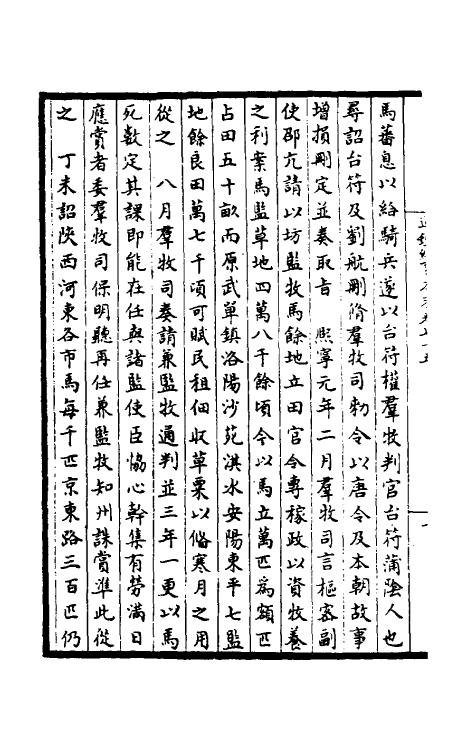 馬蕃息以給騎兵遂以台符權羣牧判官台符蒲陰人也
尋詔台符及劉航刪脩羣牧司勑令以唐令及本朝故事
增損刪定並奏取旨　熙寧元年二月羣牧司言樞密副
使邵亢請以坊監牧馬餘地立田官令專稼政以資牧養
之利案馬監草地四萬八千餘頃今以馬立萬匹爲額匹
占田五十畝而原武單鎮洛陽沙苑淇水安陽東平七監
地餘良田萬七千頃可賦民租佃收草粟以備寒月之用
從之　八月羣牧司奏請兼監牧通判並三年一更以馬
死數定其課即能在任與諸監使臣恊心幹集有勞滿日
應賞者委羣牧司保明聽再任兼監牧知州誅賞準此從
之　丁未詔陝西河東各市馬每千匹京東路三百匹仍